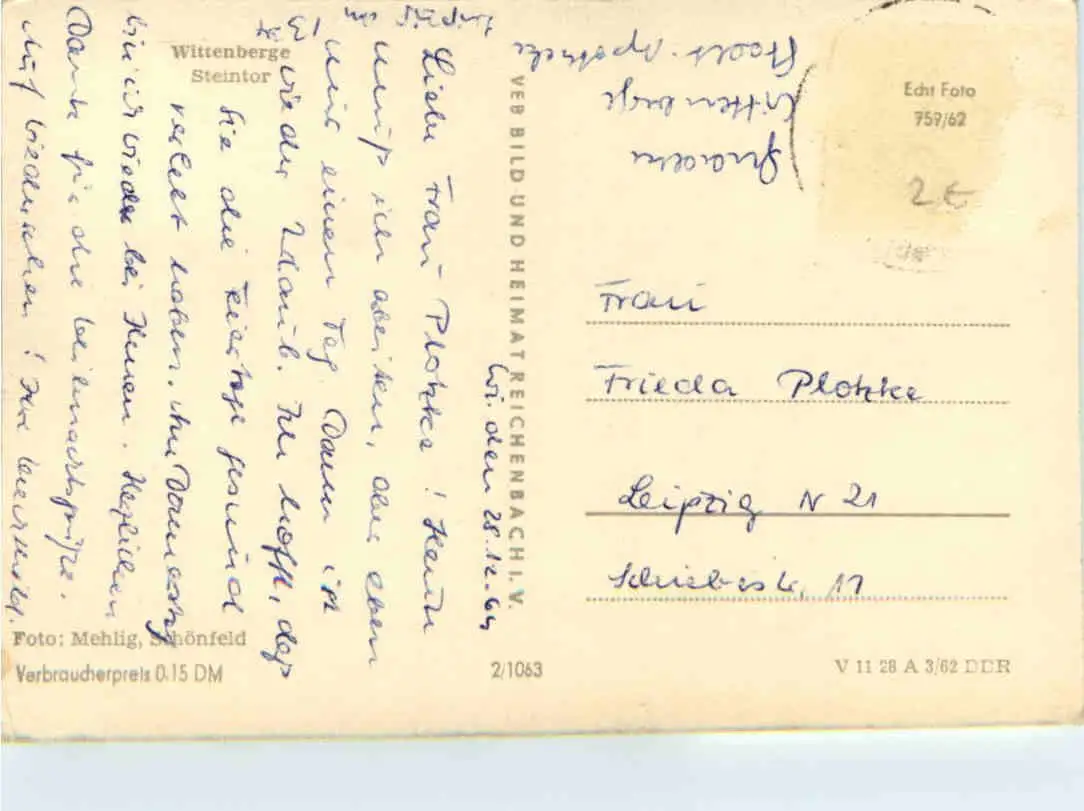 Wittenberge
Steintor
Wi. den 28.12.64
Liebe Frau Plotzke! Heute
muß ich arbeiten, aber eben
nur einen Tag. Dann ist
wieder Urlaub. Ich hoffe, daß
Sie die Feiertage gesund
verlebt haben. Am Donnerstag
bin ich wieder bei Ihnen. Herzlichen
Dank für die Weihnachtsgrüße.
Auf Wiedersehen! Ihre
Foto: Mehlig, Schönfeld
Verbraucherpreis 0.15 DM
VEB BILD UND HEIMAT REICHENBACH I. V.
2/1063
Wittenberge
Stadt-Apotheke
Echt Foto
759/62
2 €
Frau
Frieda Plotzke
Leipzig N 21
11
V 11 28 A 3/62 DDR